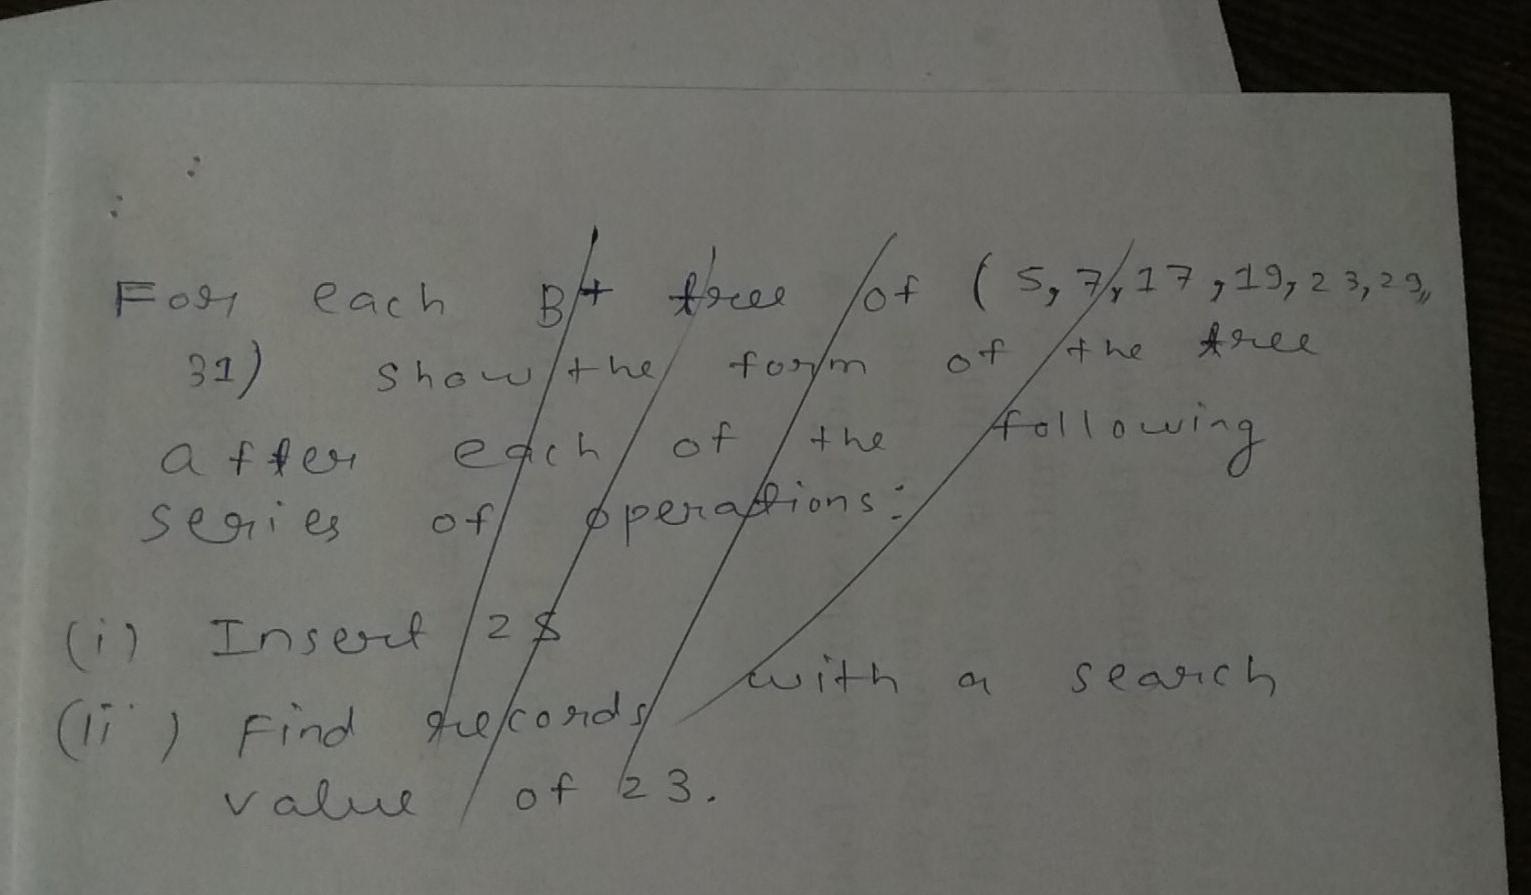 For each B+ tree of (5, 7, 17, 19, 23, 29,
31) show the form of the tree
after each of the following
series of operations:
(i) Insert
(ii) Find records with a search
value of 23.